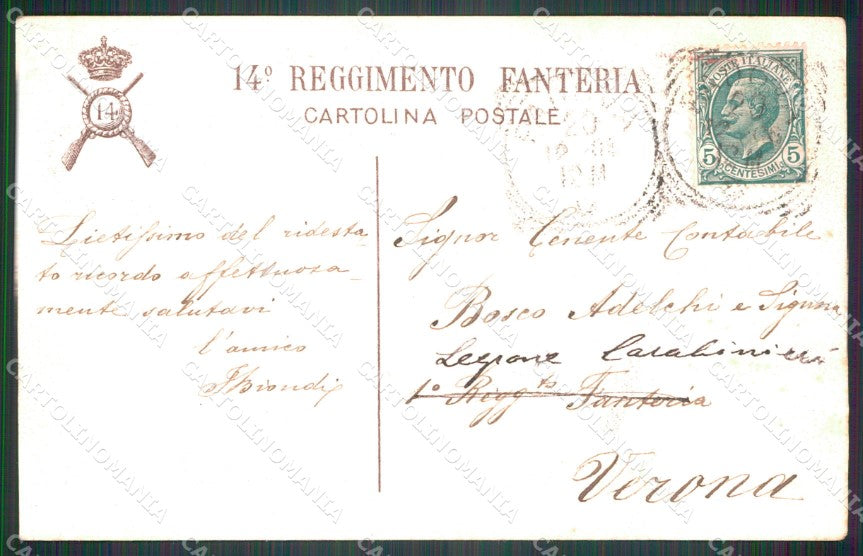 14
14º REGGIMENTO FANTERIA
CARTOLINA POSTALE
POSTE ITALIANE
5 5
CENTESIMI
Lietissimo del ridesta-
to ricordo affettuosa-
mente salutavi
l'amico
Signor Tenente Contabile
Bosco Adelchi e Signora
Legione Carabinieri
1º Regg.to Fanteria
Verona
CARTOLINOMANIA